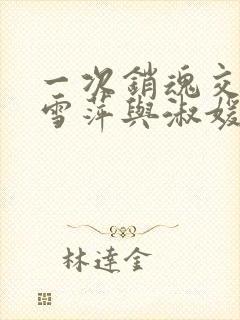 一次銷魂交
雪萍與淑媛
林達金